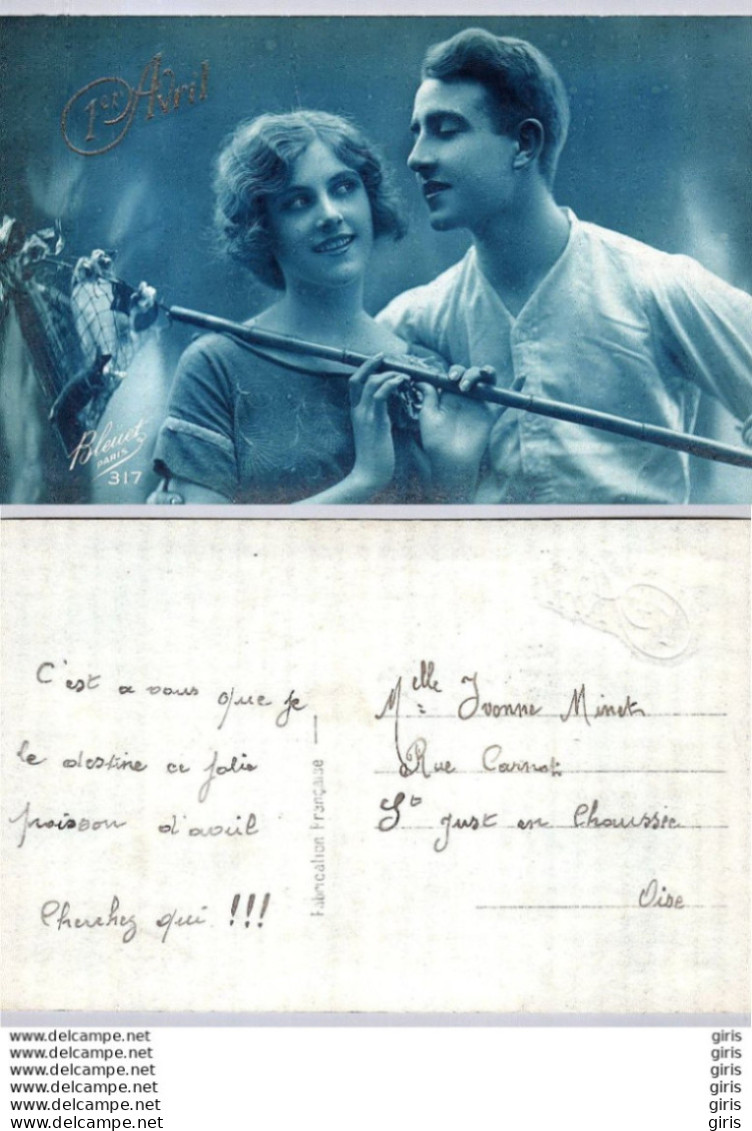 1er Avril
Bleuet
PARIS
317
C'est a vous que je
le destine ce jolie
poisson d'avril
Cherchez qui !!!
Fabrication Française
Melle Yvonne Minet
Rue Carnot
St Just en Chaussée
Oise
www.delcampe.net
www.delcampe.net
www.delcampe.net
www.delcampe.net
www.delcampe.net
www.delcampe.net
giris
giris
giris
giris
giris
giris